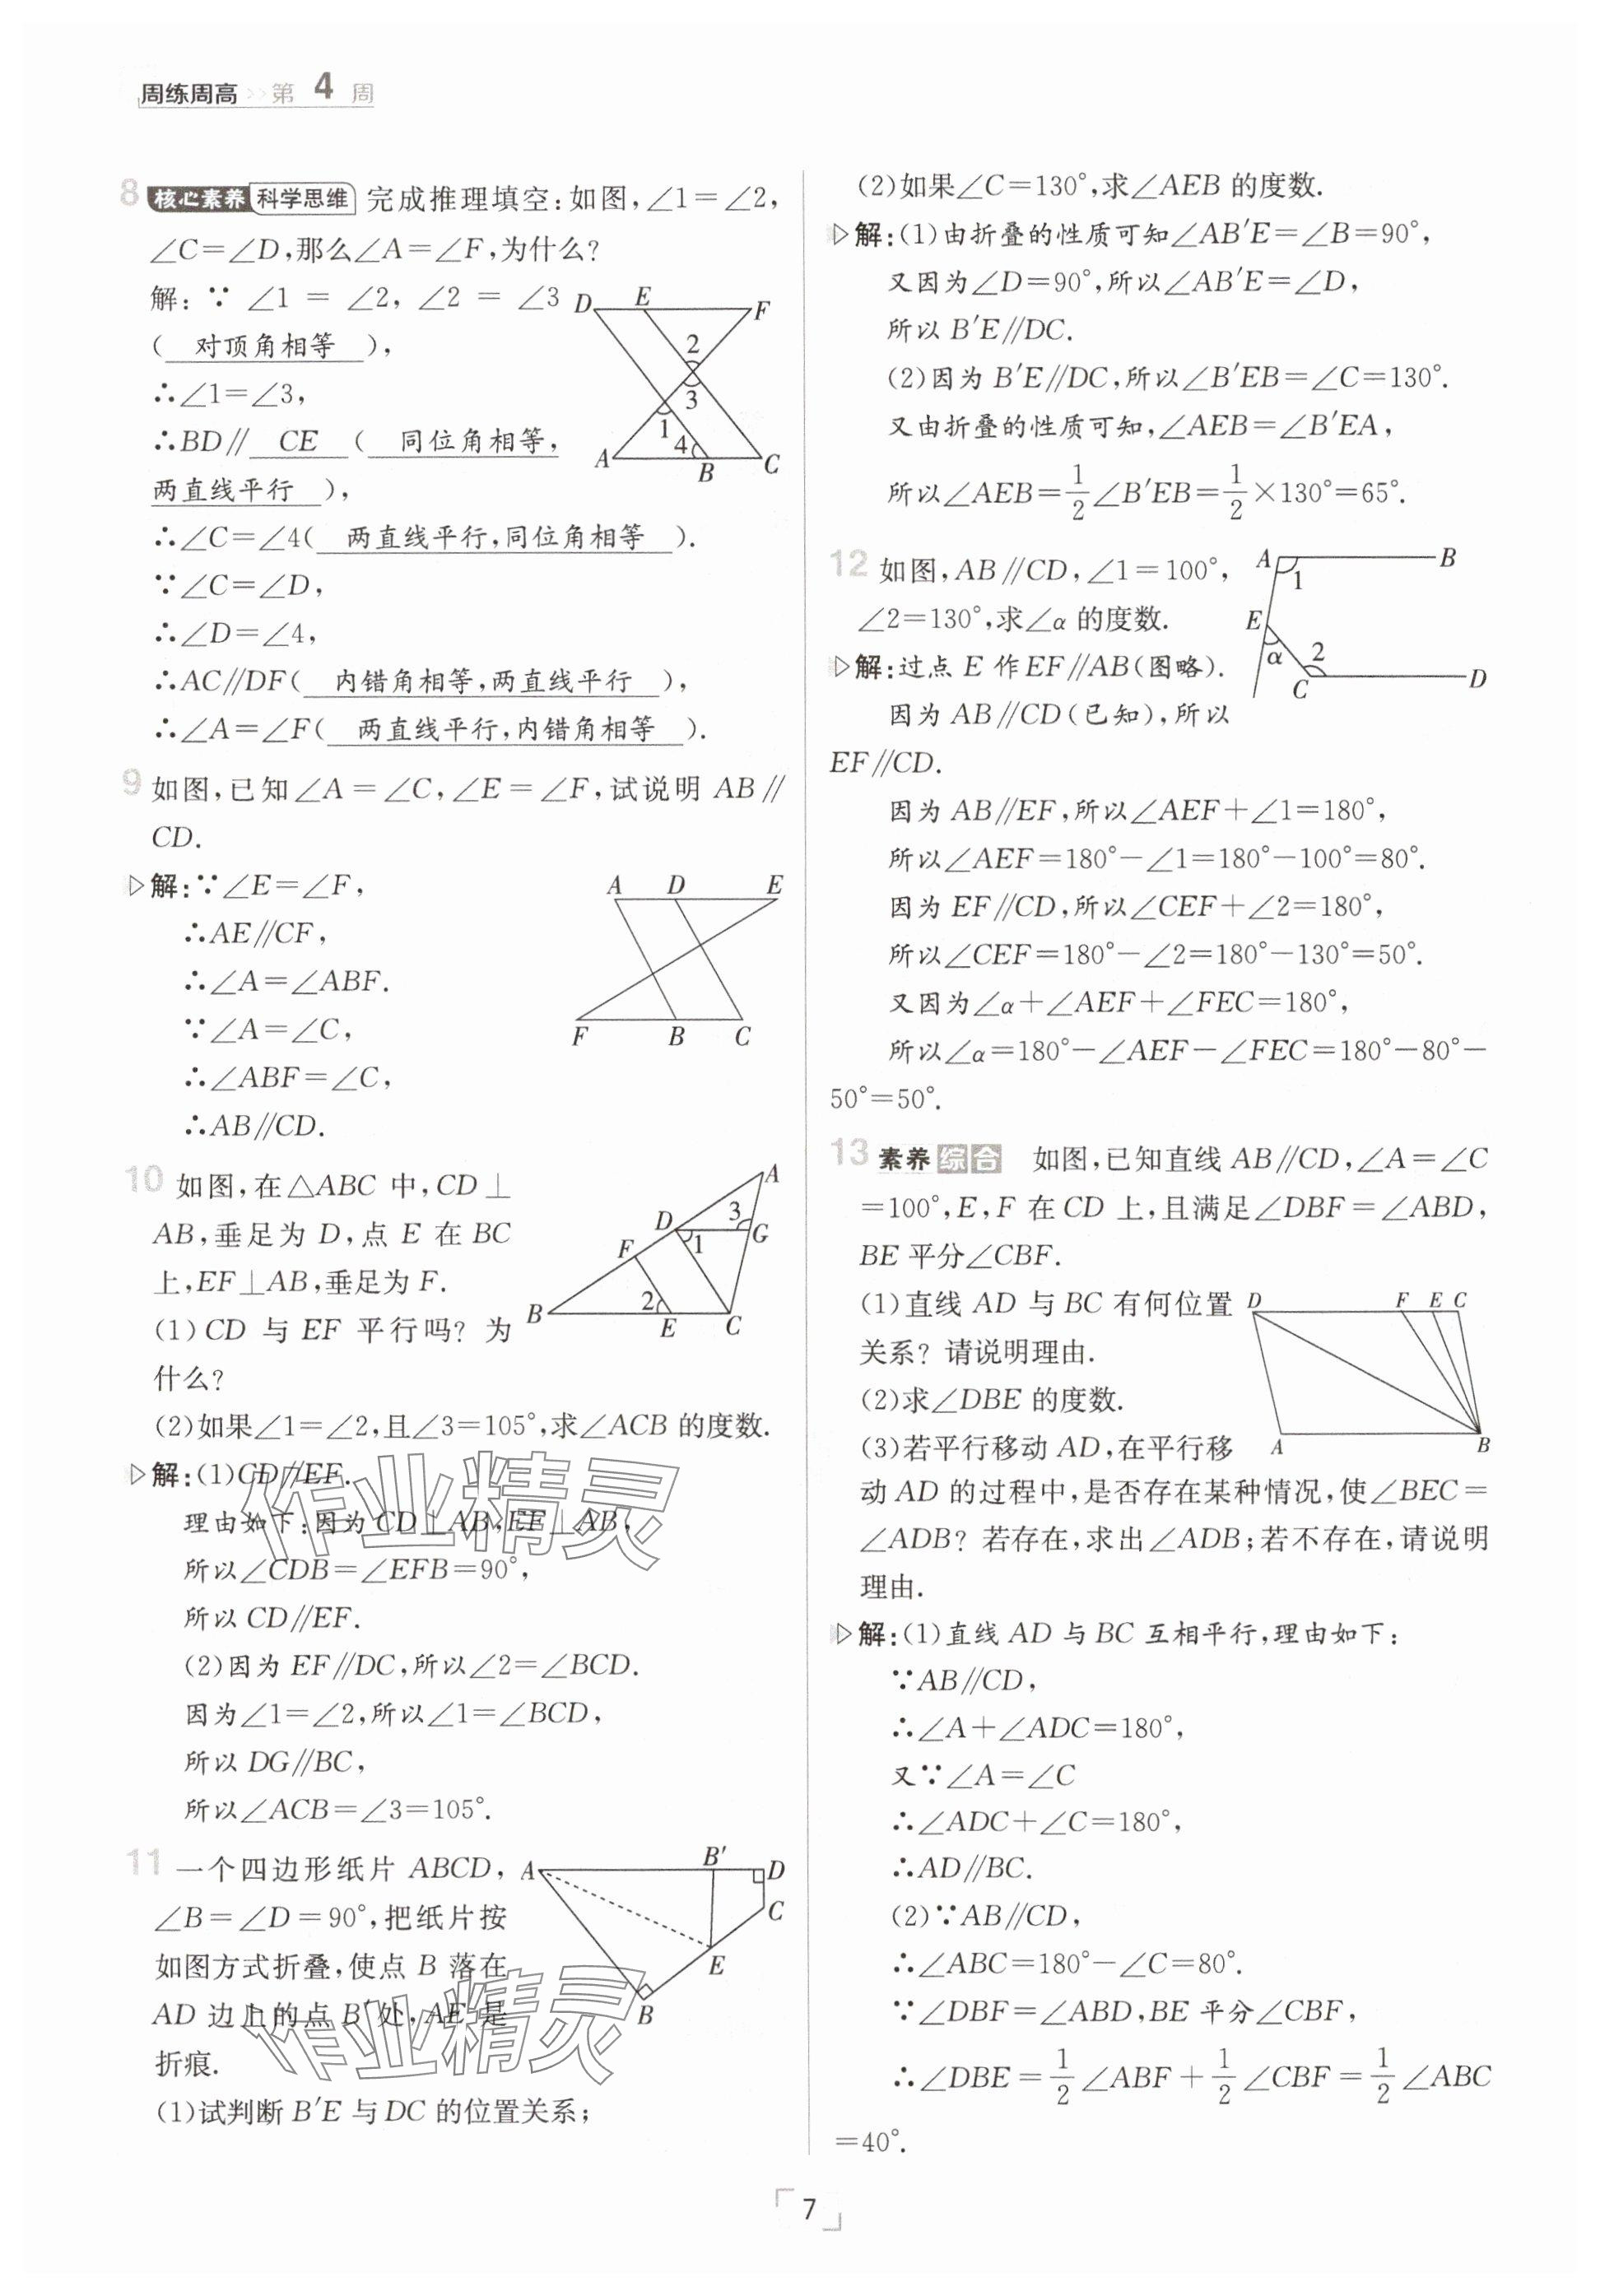 周练周高 >> 第 4 周
8 核心素养 科学思维 完成推理填空:如图,∠1=∠2,
∠C=∠D,那么∠A=∠F,为什么?
解:∵ ∠1 = ∠2, ∠2 = ∠3
( 对顶角相等 ),
∴∠1=∠3,
∴BD∥ CE ( 同位角相等,
两直线平行 ),
∴∠C=∠4( 两直线平行,同位角相等 ).
∵∠C=∠D,
∴∠D=∠4,
∴AC∥DF( 内错角相等,两直线平行 ),
∴∠A=∠F( 两直线平行,内错角相等 ).
D E F
2
3
1
4
A B C
9 如图,已知∠A=∠C,∠E=∠F,试说明 AB∥
CD.
解:∵∠E=∠F,
∴AE∥CF,
∴∠A=∠ABF.
∵∠A=∠C,
∴∠ABF=∠C,
∴AB∥CD.
A D E
F B C
10 如图,在△ABC 中,CD⊥
AB,垂足为 D,点 E 在 BC
上,EF⊥AB,垂足为 F.
(1)CD 与 EF 平行吗?为
什么?
(2)如果∠1=∠2,且∠3=105°,求∠ACB 的度数.
A
D 3
G
F 1
B 2
E C
解:(1)CD∥EF.
理由如下:因为 CD⊥AB,EF⊥AB,
所以∠CDB=∠EFB=90°,
所以 CD∥EF.
(2)因为 EF∥DC,所以∠2=∠BCD.
因为∠1=∠2,所以∠1=∠BCD,
所以 DG∥BC,
所以∠ACB=∠3=105°.
11 一个四边形纸片 ABCD,
∠B=∠D=90°,把纸片按
如图方式折叠,使点 B 落在
AD 边上的点 B′处,AE 是
折痕.
(1)试判断 B′E 与 DC 的位置关系;
A B′ D
C
E
B
作业精灵
作业精灵
(2)如果∠C=130°,求∠AEB 的度数.
解:(1)由折叠的性质可知∠AB′E=∠B=90°,
又因为∠D=90°,所以∠AB′E=∠D,
所以 B′E∥DC.
(2)因为 B′E∥DC,所以∠B′EB=∠C=130°.
又由折叠的性质可知,∠AEB=∠B′EA,
所以∠AEB=1/2∠B′EB=1/2×130°=65°.
12 如图,AB∥CD,∠1=100°,
∠2=130°,求∠α 的度数.
A B
1
E
α 2
C D
解:过点 E 作 EF∥AB(图略).
因为 AB∥CD(已知),所以
EF∥CD.
因为 AB∥EF,所以∠AEF+∠1=180°,
所以∠AEF=180°-∠1=180°-100°=80°.
因为 EF∥CD,所以∠CEF+∠2=180°,
所以∠CEF=180°-∠2=180°-130°=50°.
又因为∠α+∠AEF+∠FEC=180°,
所以∠α=180°-∠AEF-∠FEC=180°-80°-
50°=50°.
13 素养 综合 如图,已知直线 AB∥CD,∠A=∠C
=100°,E,F 在 CD 上,且满足∠DBF=∠ABD,
BE 平分∠CBF.
(1)直线 AD 与 BC 有何位置
关系?请说明理由.
(2)求∠DBE 的度数.
(3)若平行移动 AD,在平行移
动 AD 的过程中,是否存在某种情况,使∠BEC=
∠ADB?若存在,求出∠ADB;若不存在,请说明
理由.
D F E C
A B
解:(1)直线 AD 与 BC 互相平行,理由如下:
∵AB∥CD,
∴∠A+∠ADC=180°,
又∵∠A=∠C
∴∠ADC+∠C=180°,
∴AD∥BC.
(2)∵AB∥CD,
∴∠ABC=180°-∠C=80°.
∵∠DBF=∠ABD,BE 平分∠CBF,
∴∠DBE=1/2∠ABF+1/2∠CBF=1/2∠ABC
=40°.
7